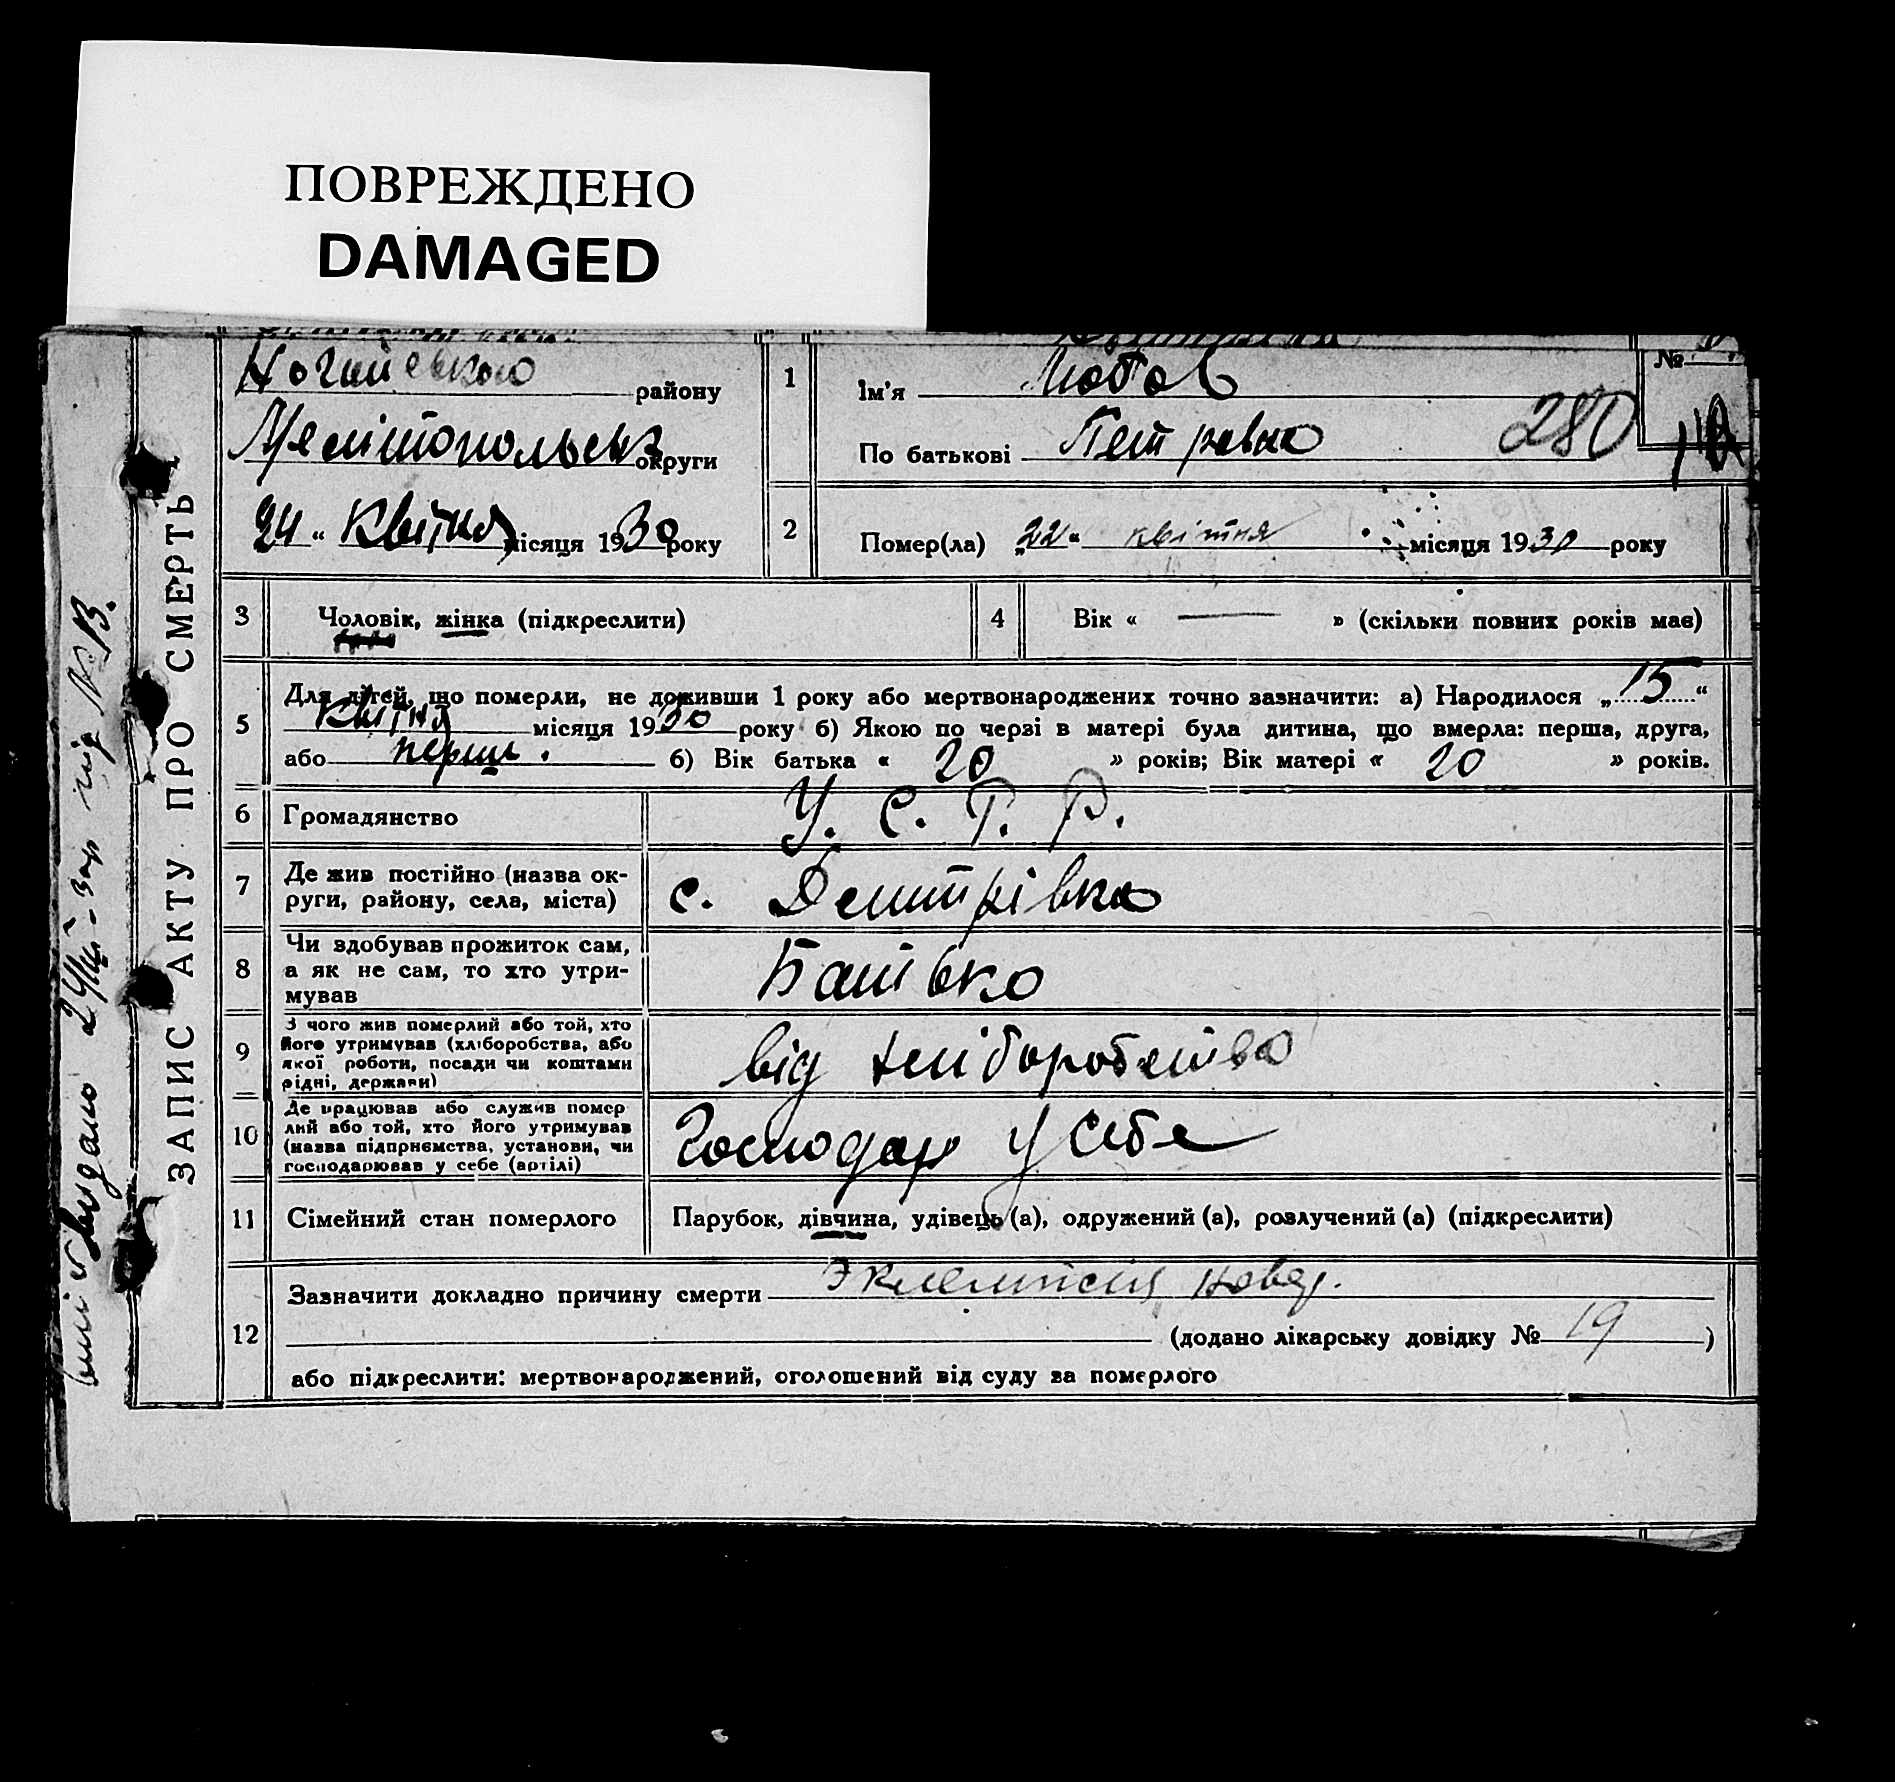 ПОВРЕЖДЕНО
DAMAGED
Ногайського району
Мелітопольськ округи
24 “ Квітня місяця 1930 року
ЗАПИС АКТУ ПРО СМЕРТЬ
1
Ім'я Любов
По батькові Петровна
280
№
2
Помер(ла) „22“ квітня місяця 1930 року
3 Чоловік, жінка (підкреслити)
4 Вік « — » (скільки повних років має)
5 Для дітей, що померли, не доживши 1 року або мертвонароджених точно зазначити: а) Народилося „15“
Квітня місяця 1930 року б) Якою по черзі в матері була дитина, що вмерла: перша, друга,
або перша. б) Вік батька « 20 » років; Вік матері « 20 » років.
6 Громадянство У. С. Р. Р.
7 Де жив постійно (назва ок-
руги, району, села, міста) с. Демитрівка
8 Чи здобував прожиток сам,
а як не сам, то хто утри-
мував Батько
9 З чого жив померлий або той, хто
його утримував (хліборобства, або
якої роботи, посади чи коштами
рідні, держави) від хліборобства
10 Де працював або служив помер
лий або той, хто його утримував
(назва підприємства, установи, чи
господарював у себе (артілі) Господар у себе
11 Сімейний стан померлого Парубок, дівчина, удівець (а), одружений (а), розлучений (а) (підкреслити)
12 Зазначити докладно причину смерти Эклемпсия новор.
(додано лікарську довідку № 19 )
або підкреслити: мертвонароджений, оголошений від суду за померлого